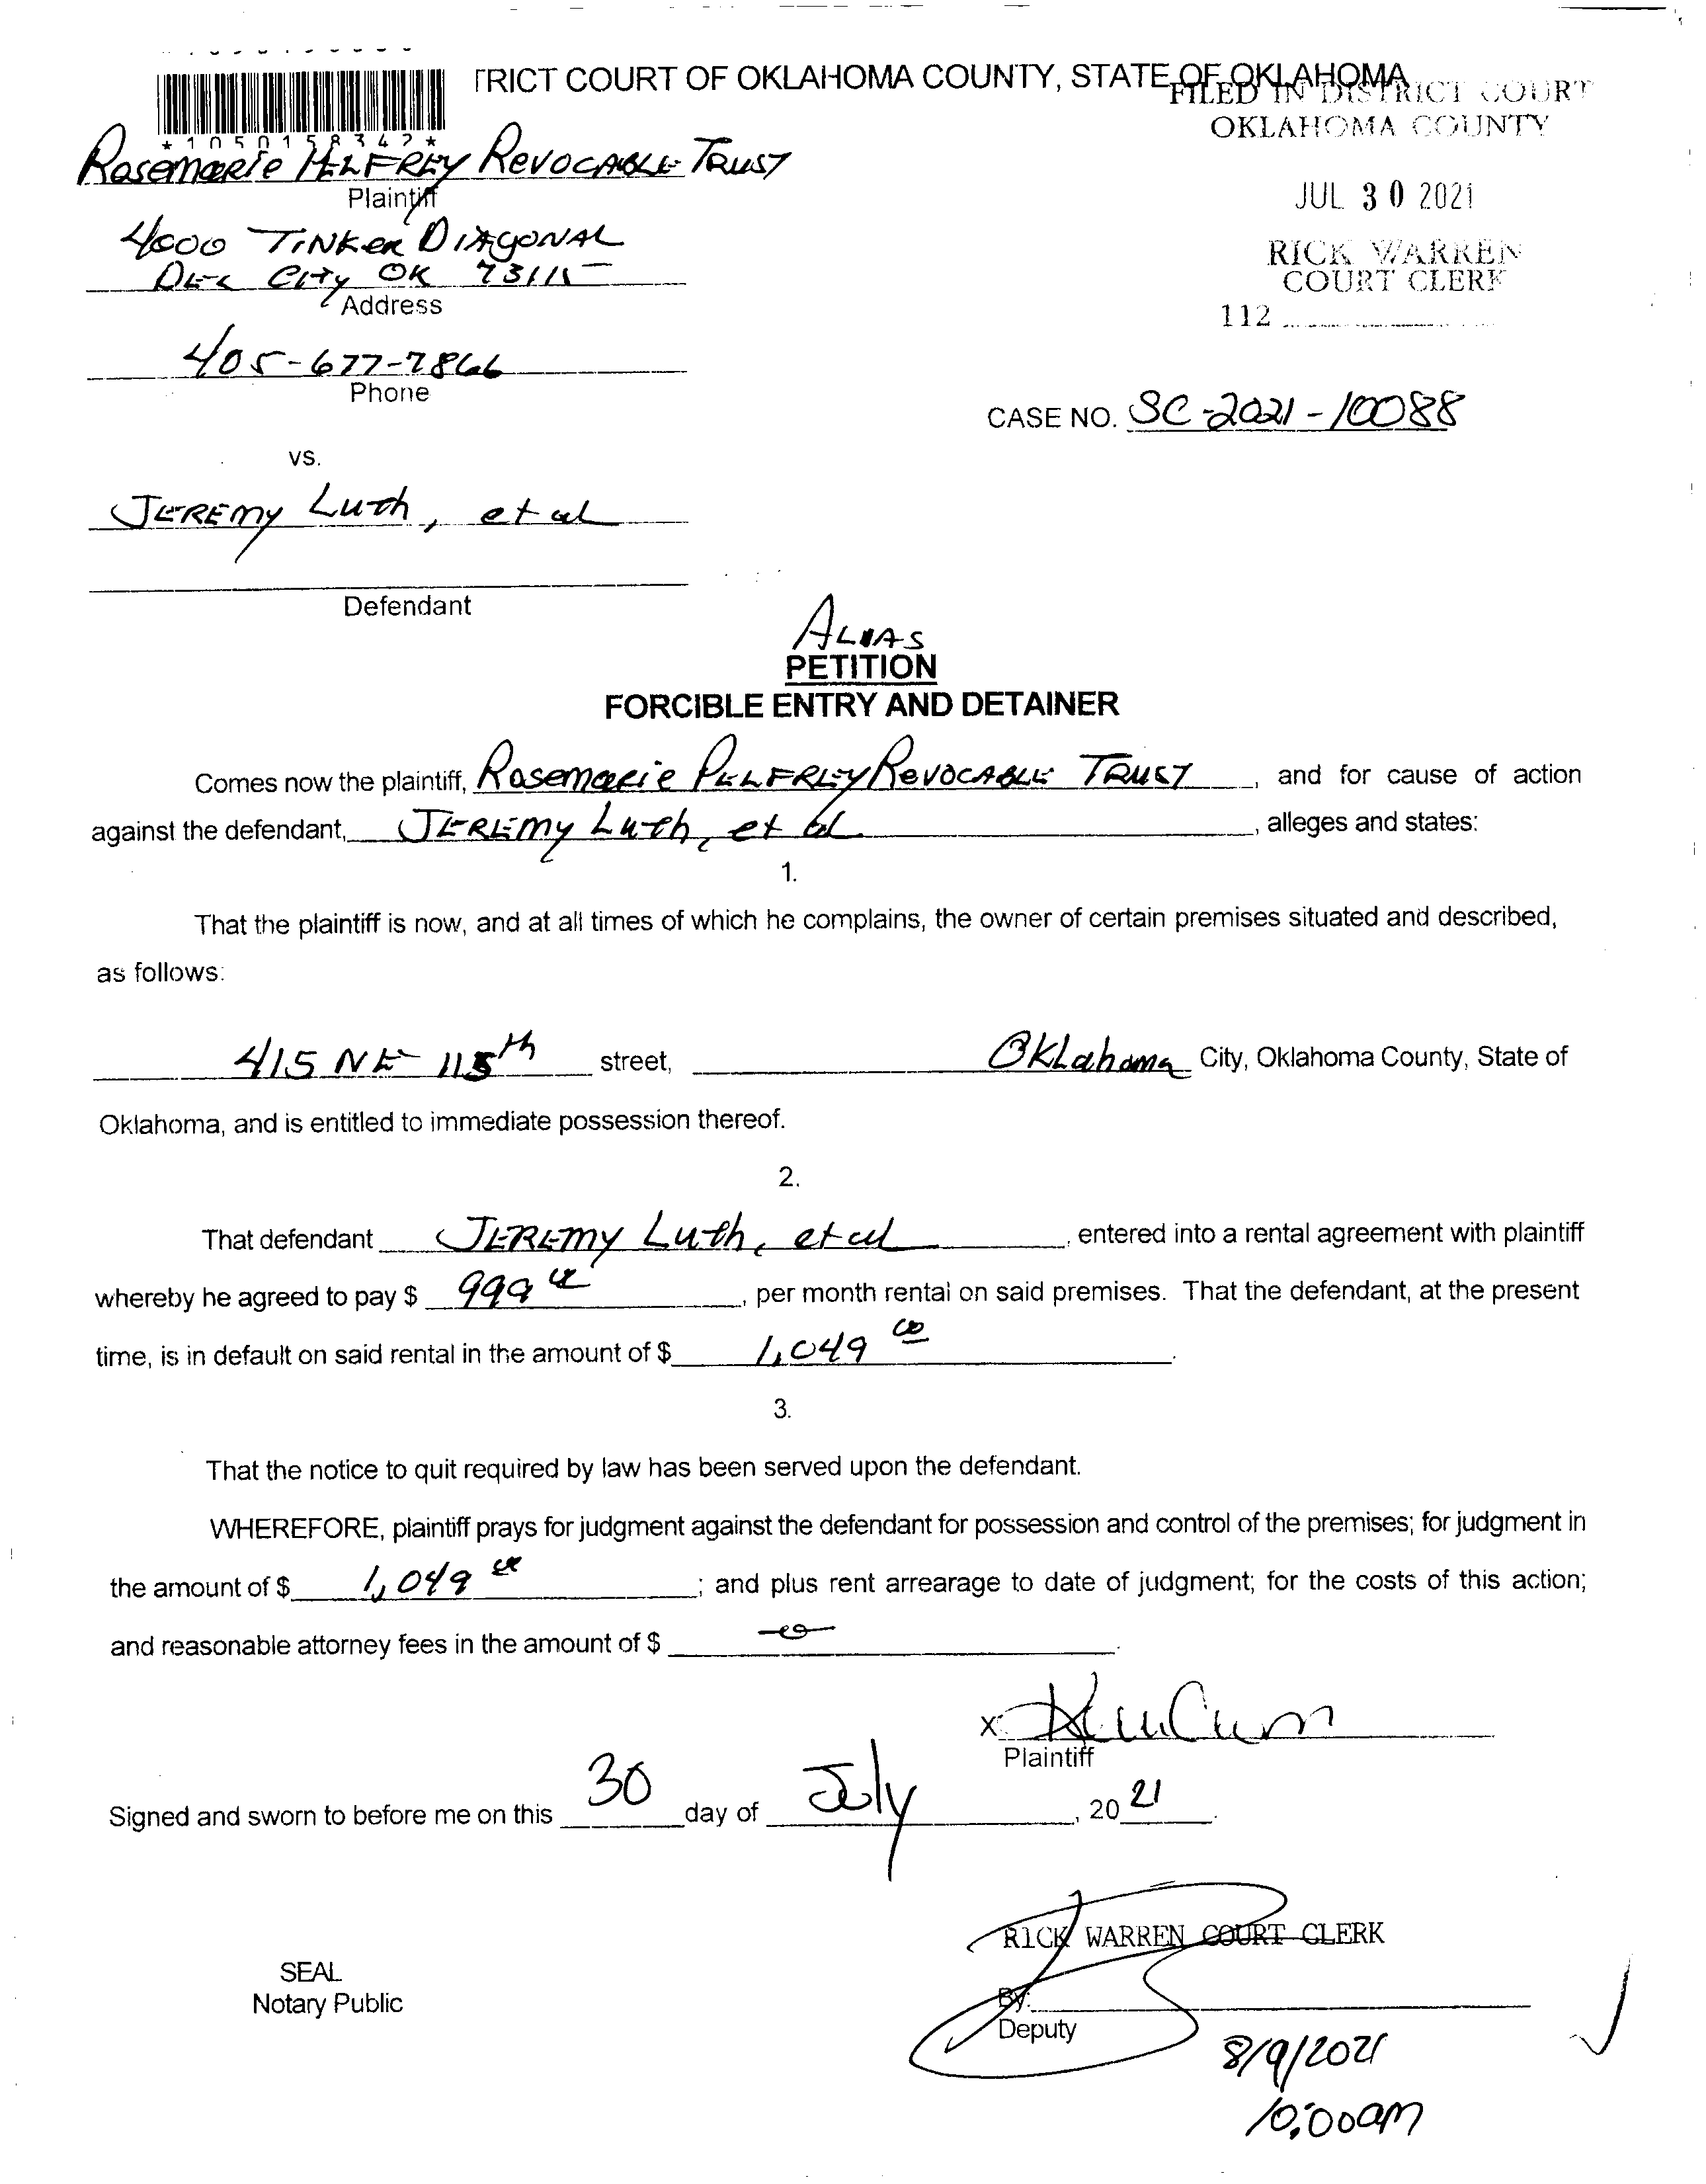 TRICT COURT OF OKLAHOMA COUNTY, STATE OF OKLAHOMA
FILED IN DISTRICT COURT
OKLAHOMA COUNTY
*1050158342*
Rosemarie PELFREY REVOCABLE TRUST
Plaintiff
JUL 30 2021
4000 TINKER DIAGONAL
DEL CITY OK 73115
Address
RICK WARREN
COURT CLERK
112
405-677-7866
Phone
CASE NO. SC-2021-10088
vs.
JEREMY Luth, et al
Defendant
ALIAS
PETITION
FORCIBLE ENTRY AND DETAINER
Comes now the plaintiff, Rosemarie PELFREY REVOCABLE TRUST, and for cause of action
against the defendant, JEREMY Luth, et al, alleges and states:
1.
That the plaintiff is now, and at all times of which he complains, the owner of certain premises situated and described,
as follows:
415 NE 115th street, Oklahoma City, Oklahoma County, State of
Oklahoma, and is entitled to immediate possession thereof.
2.
That defendant JEREMY Luth, et al, entered into a rental agreement with plaintiff
whereby he agreed to pay $ 999 00, per month rental on said premises. That the defendant, at the present
time, is in default on said rental in the amount of $ 1,049 00.
3.
That the notice to quit required by law has been served upon the defendant.
WHEREFORE, plaintiff prays for judgment against the defendant for possession and control of the premises; for judgment in
the amount of $ 1,049 00; and plus rent arrearage to date of judgment; for the costs of this action;
and reasonable attorney fees in the amount of $ -0-.
X
Plaintiff
Signed and sworn to before me on this 30 day of July, 20 21.
RICK WARREN COURT CLERK
SEAL
Notary Public
By:
Deputy
8/9/2021
10:00am